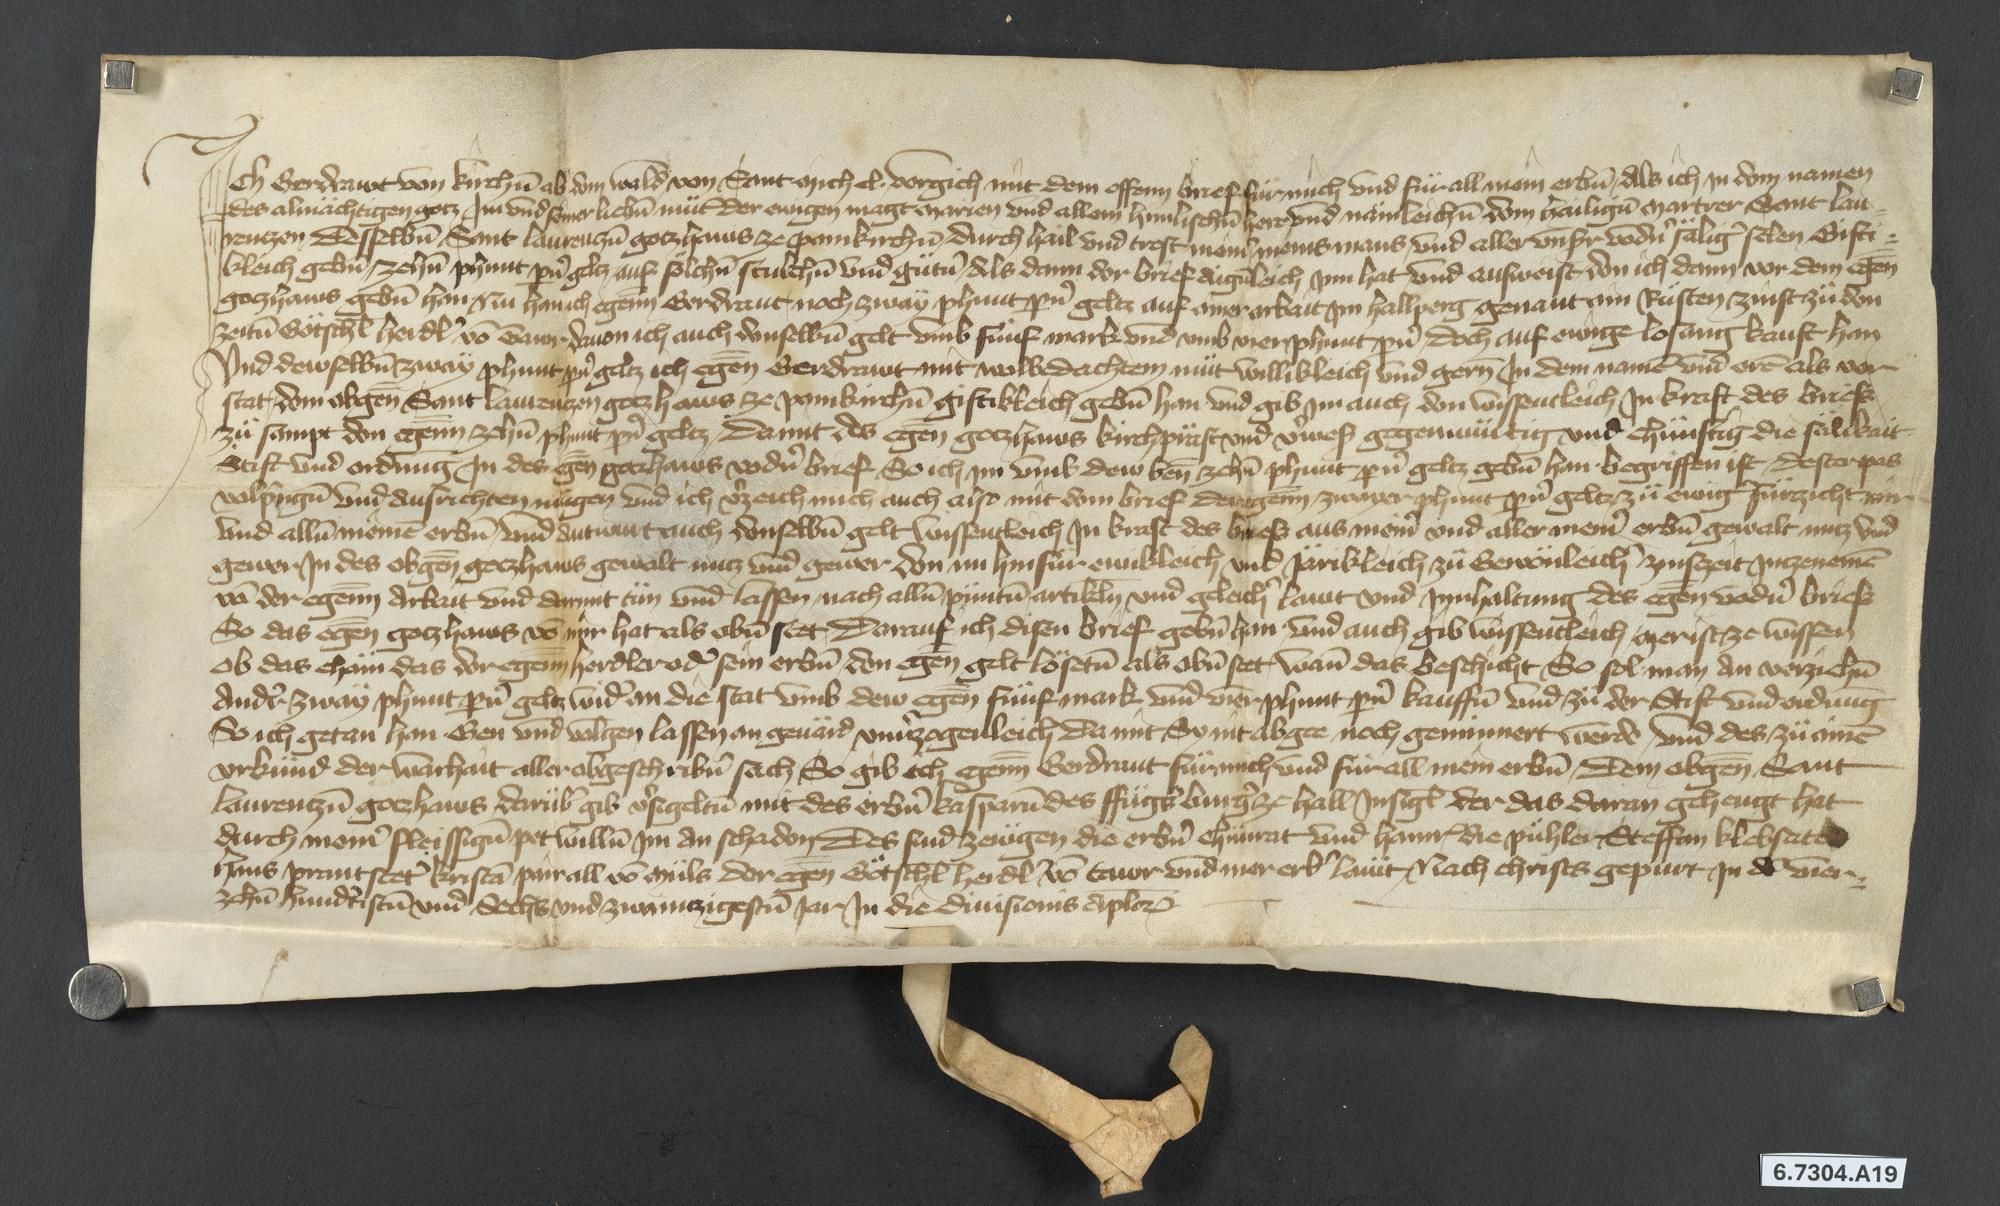 Ich Gerdrawt von kirchn̄ ab dem wald von Sant Michel vergich mit dem offenn brief für mich vnd für all mein erbn̄ Als ich in dem namen
des almächtigen gotz Im vnd seiner liebn̄ müt̄ der ewigen magt Marien vnd allem himlischn̄ here vnd nämleichn̄ dem heilign̄ Martrer Sant Lau-
rentzen Desselbn̄ Sant Laurentzn̄ gotzhaws ze pamkirchn̄ durch hail vnd trost meiner meins mans vnd aller vnsr̄ vodn̄ säliḡ selen Gifti-
kleich gebn̄ zehn̄ phunt pn̄ geltz auf sölchn̄ stukchn̄ vnd gütn̄ Als dann der brief aigenleich Inn hat vnd ausweist den ich dann vor dem egen̄
gotzhaws gebn̄ han Nu han ich egenn̄ Gerdraut noch zwaÿ phunt pn̄ geltz auf ainer arbait Im hallperg genant am Rästen zinst zü den
zeitn̄ Götschl̄ heidl̄ vō Tawr dauon ich auch denselbn̄ gelt vmb fünf mark vnd vmb vier phunt pn̄ doch auf ewige losung kauft han
Vnd dewselbn̄ zwaÿ phunt pn̄ geltz ich egen̄ Gerdrawt mit wolbedachtem müt willikleich vnd gern̄ In dem namē vnd erē als vor
stat dem obgen̄ Sant Laurentzen gotzhaws ze pamkirchn̄ giftikleich gebn̄ han vnd gib Im auch den wissentleich In kraft des briefs
zü sampt den egenn̄ zehn̄ phunt pn̄ geltz Damit des egen̄ gotzhaws kirchpräst vnd v̄wes̄ gegenwürtig vnd chünftiḡ die sälikait
Stift vnd ordnung In des egen̄ gotzhaws vodn̄ brief So ich im vmb dew ben̄ zehn̄ phunt pn̄ geltz gebn̄ han begriffen ist dester pas
volpringn̄ vnd ausrichten mügen vnd ich v̄zeich mich auch also mit dem brief der egenn̄ zwayer phunt pn̄ geltz zü ewiḡ fürzicht mir
vnd alln̄ meinē erbn̄ vnd antwurt auch denselbn̄ gelt wissentleich In kraft des briefs aus mein̄ vnd aller mein̄ erbn̄ gewalt nutz vnd
gewer In des obgen̄ gotzhaws gewalt nutz vnd gewer den nu hinfür ewikleich vnd Järikleich zü Gewönleich̄ zinszeit Intzenemē
vō der egenn̄ Arbait vnd damit tün vnd lassen nach alln̄ püntn̄ artikln̄ vnd geleich̄ lawt vnd Innhaltung des egen̄ vodn̄ briefs
So das egen̄ gotzhaws vō mir hat als obn̄ stet Darauf ich disen brief gebn̄ han vnd auch gib wissentleich Mer ist ze wissen
ob das chäm das der egenn̄ heidler od̄ sein erbn̄ den egen̄ gelt lösetn̄ als obn̄ stet wann das beschicht So sol man an verziehn̄
Andr̄ zwaÿ phunt pn̄ geltz wid̄ an die stat vmb dew egen̄ fünf mark vnd vier phunt pn̄ kauffn̄ vnd zü der Stift vnd ordnung
So ich getan han Gen vnd volgen lassen an geuärd vnu̅zogenleich Damit Sy nit abgee noch geminnert werde Vnd des zü ainē
vrkünd der warhait aller obgeschribn̄ sach So gib ich egenn̄ Gerdraut für mich vnd für all mein erbn̄ Dem obgen̄ Sant
Laurentzn̄ gotzhaws darüb̄ gib v̄sigeltn̄ mit des erbn̄ kasparn̄ des ffügs̄ burḡ ze hall Insigl̄ der das daran gehengt hat
durch mein̄ fleissign̄ pet willn̄ im an schaden Des sind zewgen die erbn̄ Chünrat vnd hanns̄ die pühler Steffan klebsate
hans prantstet̄ kristā pair all vō Mils der egen̄ Götschl̄ heidl̄ vō tawr vnd mer erb̄ läwt Nach christs gepurt In dē vier-
zehn̄ hundristn̄ vnd Sechs vnd zwaintzigestn̄ Jar In die diuisionis aplor̄
6.7304.A19